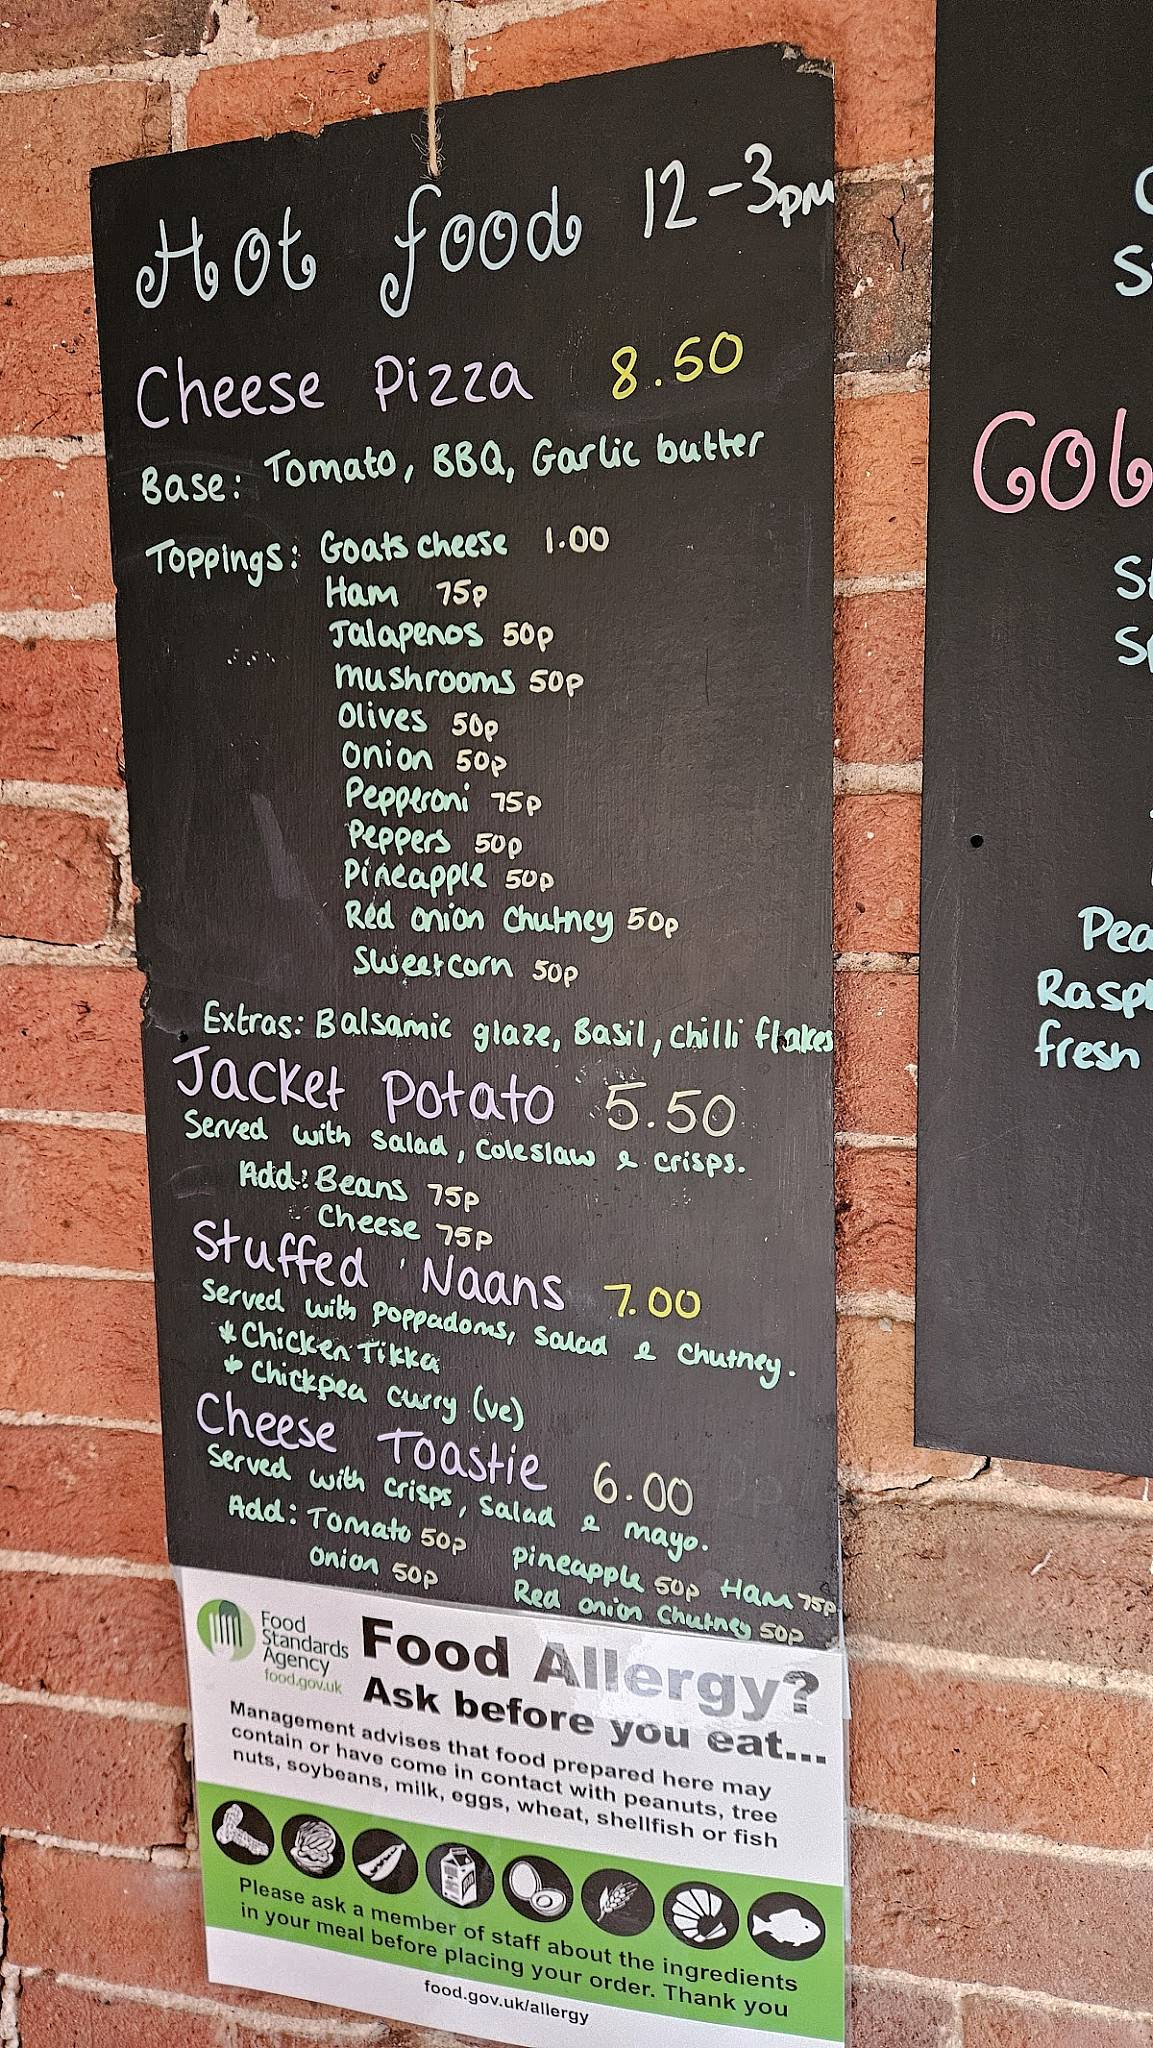 Hot food 12-3pm
Cheese Pizza 8.50
Base: Tomato, BBQ, Garlic butter
Toppings: Goats cheese 1.00
Ham 75p
Jalapenos 50p
Mushrooms 50p
Olives 50p
Onion 50p
Pepperoni 75p
Peppers 50p
Pineapple 50p
Red onion chutney 50p
Sweetcorn 50p
Extras: Balsamic glaze, Basil, chilli flakes
Jacket Potato 5.50
Served with salad, coleslaw & crisps.
Add: Beans 75p
Cheese 75p
Stuffed Naans 7.00
Served with poppadoms, salad & chutney.
* Chicken Tikka
* Chickpea curry (ve)
Cheese Toastie 6.00
Served with crisps, salad & mayo.
Add: Tomato 50p pineapple 50p Ham 75p
onion 50p Red onion chutney 50p
Food
Standards
Agency
food.gov.uk
Food Allergy?
Ask before you eat...
Management advises that food prepared here may
contain or have come in contact with peanuts, tree
nuts, soybeans, milk, eggs, wheat, shellfish or fish
Please ask a member of staff about the ingredients
in your meal before placing your order. Thank you
food.gov.uk/allergy
fresh